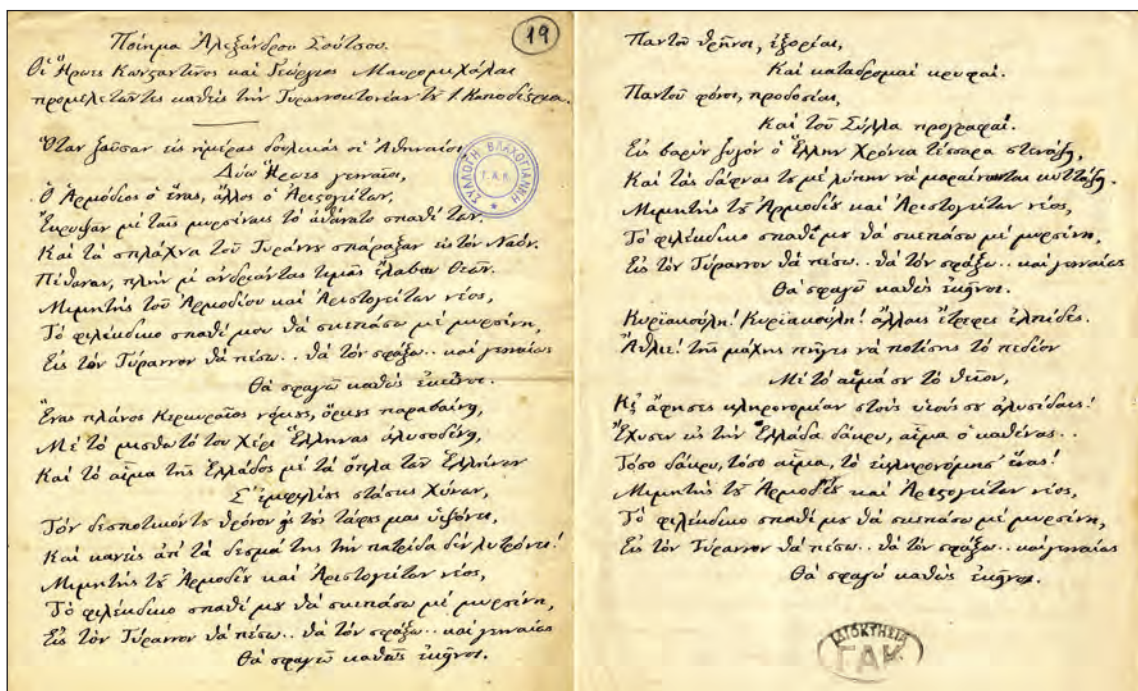 19
Ποίημα Ἀλεξάνδρου Σούτσου.
Οἱ Ἥρωες Κωνσταντῖνος καὶ Γεώργιος Μαυρομιχάλαι
προμελετῶντες καθεὶς τὴν Τυραννοκτονίαν τȣ͂ Ι. Καποδίστρια.
Ὅταν ζοῦσαν εἰς ἡμέρας δουλικὰς οἱ Ἀθηναῖοι
Δύω Ἥρωες γενναῖοι,
Ὁ Ἁρμόδιος ὁ ἕνας, ἄλλος ὁ Ἀριστογείτων,
Ἔκρυψαν μὲ ταῖς μυρσίναις τὸ ἀθάνατο σπαθί των.
Καὶ τὰ σπλάχνα τοῦ Τυράννȣ σπάραξαν εἰς τὸν Ναόν.
Πέθαναν, πλὴν μὲ ἀνδριάντας τιμὰς ἔλαβαν Θεῶν.
Μιμητὴς τοῦ Ἁρμοδίου καὶ Ἀριστογείτων νέος,
Τὸ φιλέκδικο σπαθί μου θὰ σκεπάσω μὲ μυρσίνη,
Εἰς τὸν Τύραννον θὰ πέσω.. θὰ τὸν σφάξω.. καὶ γενναίως
Θὰ σφαγῶ καθὼς ἐκεῖνοι.
Ἕνας πλάνος Κερκυραῖος νόμȣς, ὅρκȣς παραβαίνει,
Μὲ τὸ μισθωτό του χέρι Ἕλληνας ἁλυσοδένει,
Καὶ τὸ αἷμα τῆς Ἑλλάδος μὲ τὰ ὅπλα τῶν Ἑλλήνων
Σ' ἐμφυλίȣς στάσεις χύνων,
Τὸν δεσποτικόν τȣ θρόνον εἰς τȣ̀ς τάφȣς μας ὑψόνει,
Καὶ κανεὶς ἀπ' τὰ δεσμά της τὴν πατρίδα δὲν λυτρόνει!
Μιμητὴς τȣ͂ Ἁρμοδίȣ καὶ Ἀριστογείτων νέος,
Τὸ φιλέκδικο σπαθί μȣ θὰ σκεπάσω μὲ μυρσίνη,
Εἰς τὸν Τύραννον θὰ πέσω.. θὰ τὸν σφάξω.. καὶ γενναίως
Θὰ σφαγῶ καθὼς ἐκεῖνοι.
ΣΥΛΛΟΓΗ ΒΛΑΧΟΓΙΑΝΝΗ
Γ.Α.Κ.
Παντοῦ θρῆνοι, ἐξορίαι,
Καὶ καταδρομαὶ κρυφαί.
Παντοῦ φόνοι, προδοσίαι,
Καὶ τοῦ Σύλλα προγραφαί.
Εἰς βαρὺν ζυγὸν ὁ Ἕλλην χρόνια τέσσαρα στενάζει,
Καὶ τὰς δάφνας τȣ μὲ λύπην νὰ μαραίνωνται κυττάζει.
Μιμητὴς τȣ͂ Ἁρμοδίȣ καὶ Ἀριστογείτων νέος,
Τὸ φιλέκδικο σπαθί μȣ θὰ σκεπάσω μὲ μυρσίνη,
Εἰς τὸν Τύραννον θὰ πέσω.. θὰ τὸν σφάξω.. καὶ γενναίως
Θὰ σφαγῶ καθὼς ἐκεῖνοι.
Κυριακούλη! Κυριακούλη! ἄλλαις ἔτρεφες ἐλπίδες.
Ἄθλιε! τῆς μάχης πῆγες νὰ ποτίσῃς τὸ πεδίον
Μὲ τὸ αἷμά σȣ τὸ θεῖον,
Κι ἄφησες κληρονομίαν στοὺς υἱούς σȣ ἁλυσίδαις!
Ἔχυσεν εἰς τὴν Ἑλλάδα δάκρυ, αἷμα ὁ καθένας..
Τόσο δάκρυ, τόσο αἷμα, τὸ ἐκληρονόμησ' ἕνας!
Μιμητὴς τȣ͂ Ἁρμοδίȣ καὶ Ἀριστογείτων νέος,
Τὸ φιλέκδικο σπαθί μȣ θὰ σκεπάσω μὲ μυρσίνη,
Εἰς τὸν Τύραννον θὰ πέσω.. θὰ τὸν σφάξω.. καὶ γενναίως
Θὰ σφαγῶ καθὼς ἐκεῖνοι.
ΙΔΙΟΚΤΗΣΙΑ
ΓΑΚ